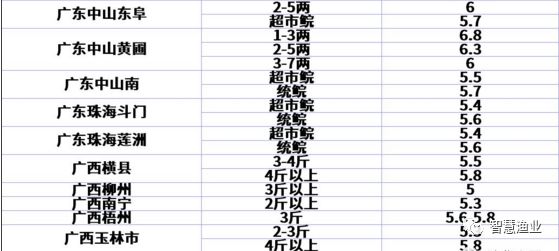 广东中山东阜 2-5两 6
超市鲩 5.7
广东中山黄圃 1-3两 6.8
2-5两 6.3
3-7两 6
广东中山南 超市鲩 5.5
统鲩 5.7
广东珠海斗门 超市鲩 5.4
统鲩 5.6
广东珠海莲洲 超市鲩 5.4
统鲩 5.6
广西横县 3-4斤 5.5
4斤以上 5.8
广西柳州 3斤以上 5
广西南宁 2斤以上 5.3
广西梧州 3斤 5.6 5.8
广西玉林市 2-3斤
4斤以上 5.8
智慧渔业